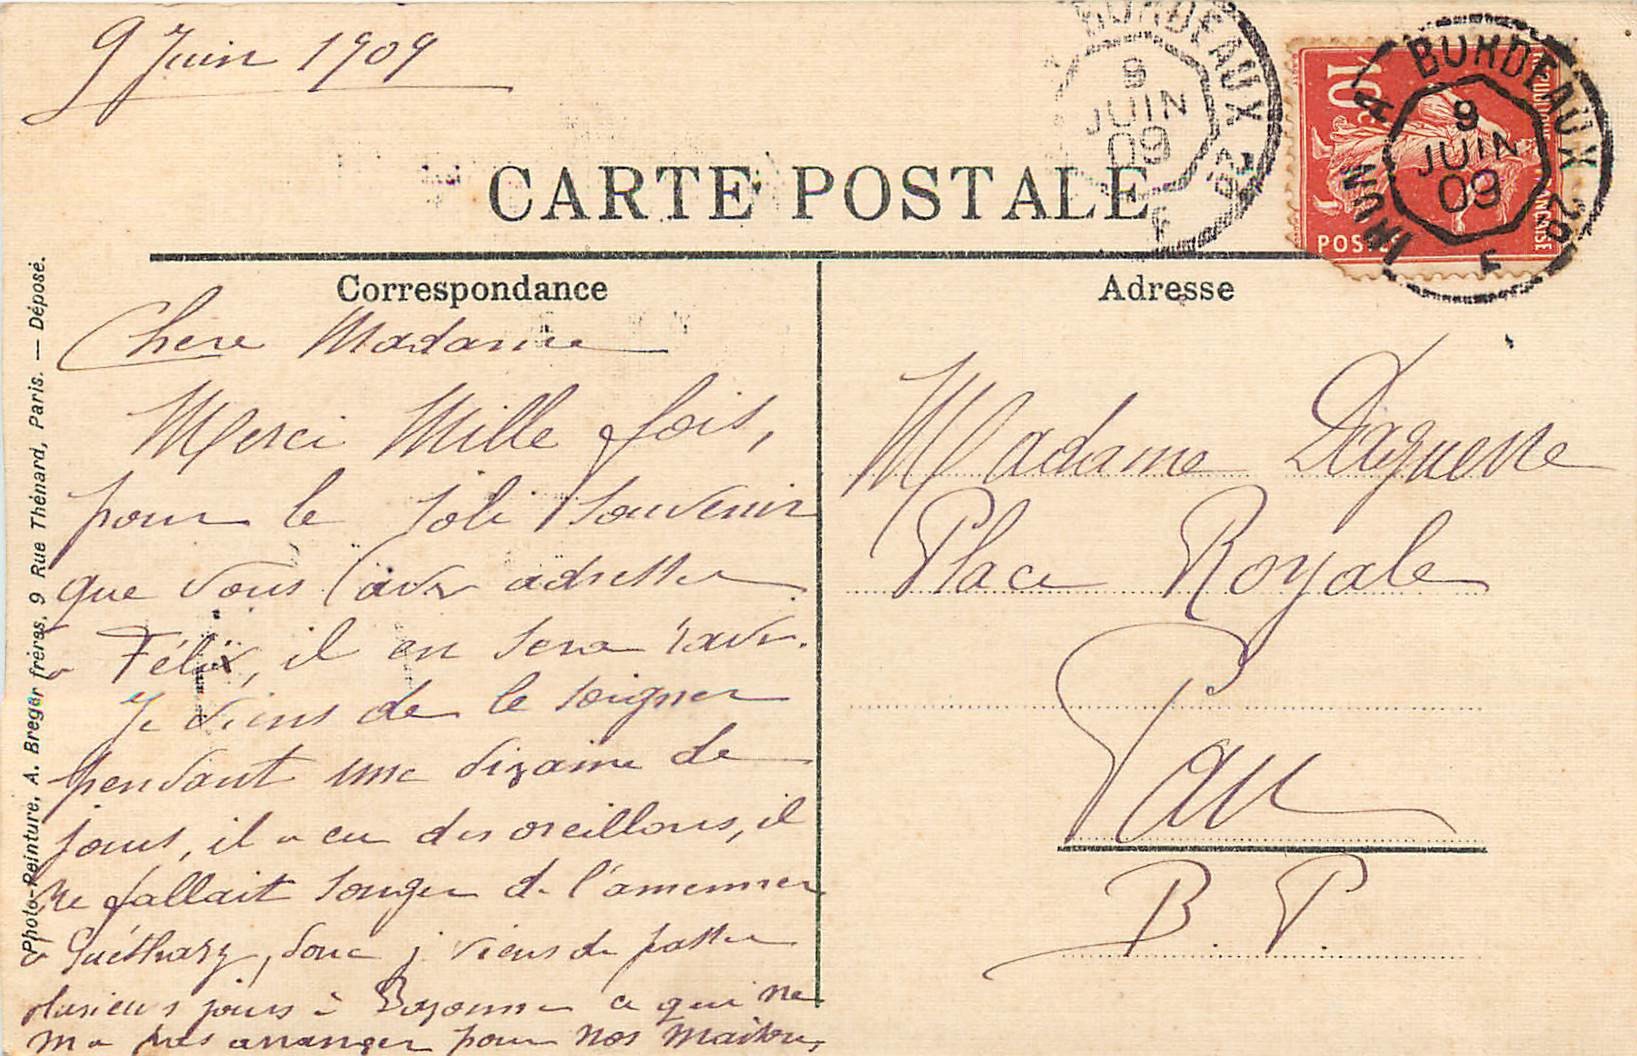 9 Juin 1909
CARTE POSTALE
Correspondance
Chere Madame
Merci Mille fois,
pour le joli souvenir
que vous avez adresser
a Félix, il en sera ravi.
Je viens de le soigner
pendant une dizaine de
jours, il a eu des oreillons, il
ne fallait songer de l'amenner
a Guéthary, donc j viens de passer
plusieurs jours à Bayonne ce qui ne
m'a pas arranger pour nos maisons,
Photo-Peinture, A. Breger frères, 9 Rue Thénard, Paris. — Déposé.
Adresse
Madame Daguerre
Place Royale
Pau
B. P.
BORDEAUX
9
JUIN
09
F
10c
REPUBLIQUE FRANÇAISE
POSTES
IRUN A BORDEAUX
9
JUIN
09